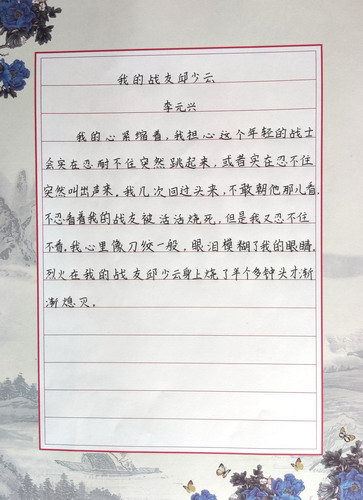 我的战友邱少云
李元兴
我的心紧缩着，我担心这个年轻的战士
会实在忍耐不住突然跳起来，或者实在忍不住
突然叫出声来。我几次回过头来，不敢朝他那儿看，
不忍看着我的战友被活活烧死，但是我又忍不住
不看。我心里像刀绞一般，眼泪模糊了我的眼睛。
烈火在我的战友邱少云身上烧了半个多钟头才渐
渐熄灭。